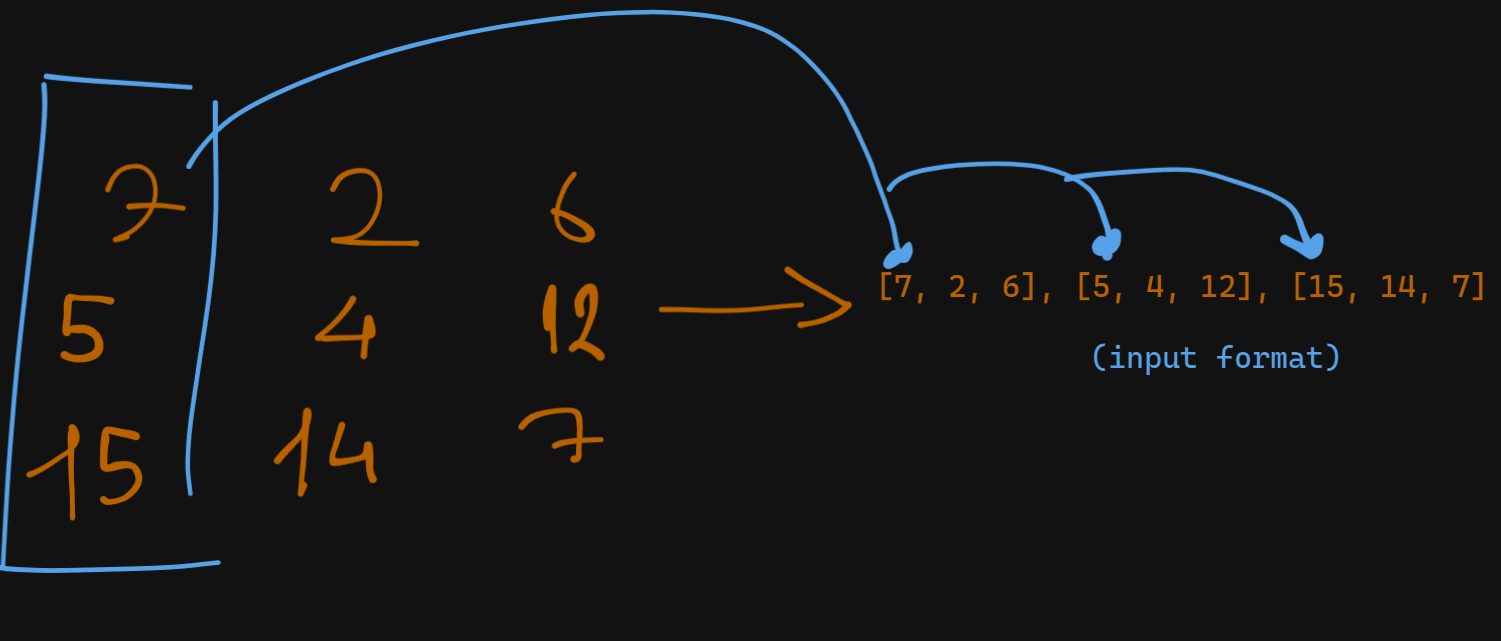 7 2 6
5 4 12
15 14 7
[7, 2, 6], [5, 4, 12], [15, 14, 7]
(input format)